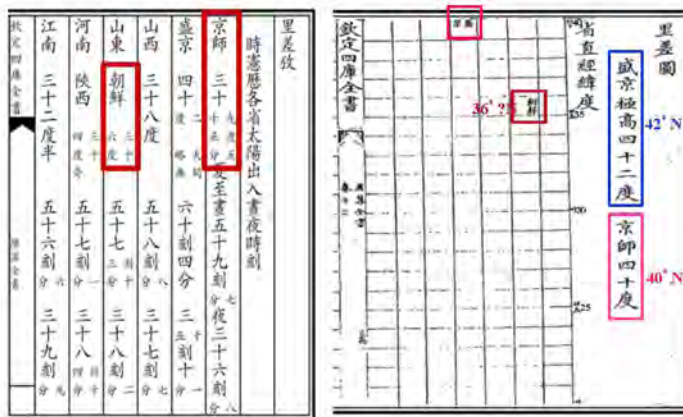 里差攷
時憲歷各省太陽出入晝夜時刻
京師 三十九度五十五分 夏至晝五十九刻七分 夜三十六刻八分
盛京 四十二度 六十刻四分 三十五刻十一分
山西 三十八度 五十八刻八分 三十七刻七分
山東 朝鮮 三十六度 五十七刻十三分 三十八刻二分
河南 陝西 三十四度奇 五十七刻一分 三十八刻十四分
江南 三十二度半 五十六刻六分 三十九刻九分
欽定四庫全書
曆算全書
里差圖
盛京極高四十二度
42°N
京師四十度
40°N
省直經緯度
35
30
25
朝鮮
36°?N
欽定四庫全書
曆算全書